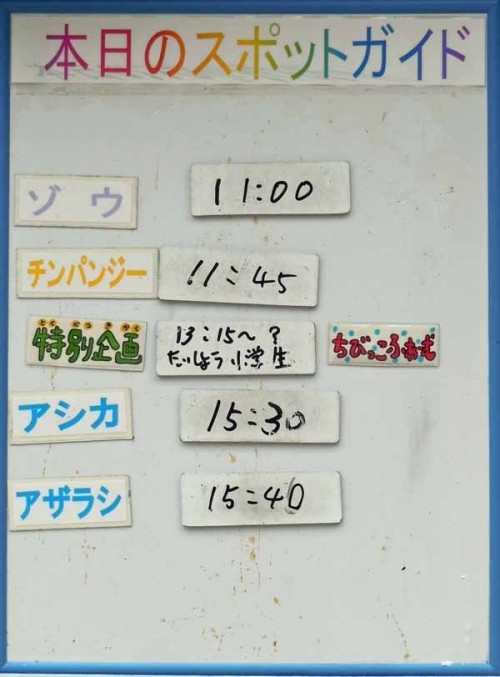 本日のスポットガイド
ゾウ 11:00
チンパンジー 11:45
とくべつきかく
特別企画 13:15〜？ ちびっころぁーむ
たいしょう小学生
アシカ 15:30
アザラシ 15:40